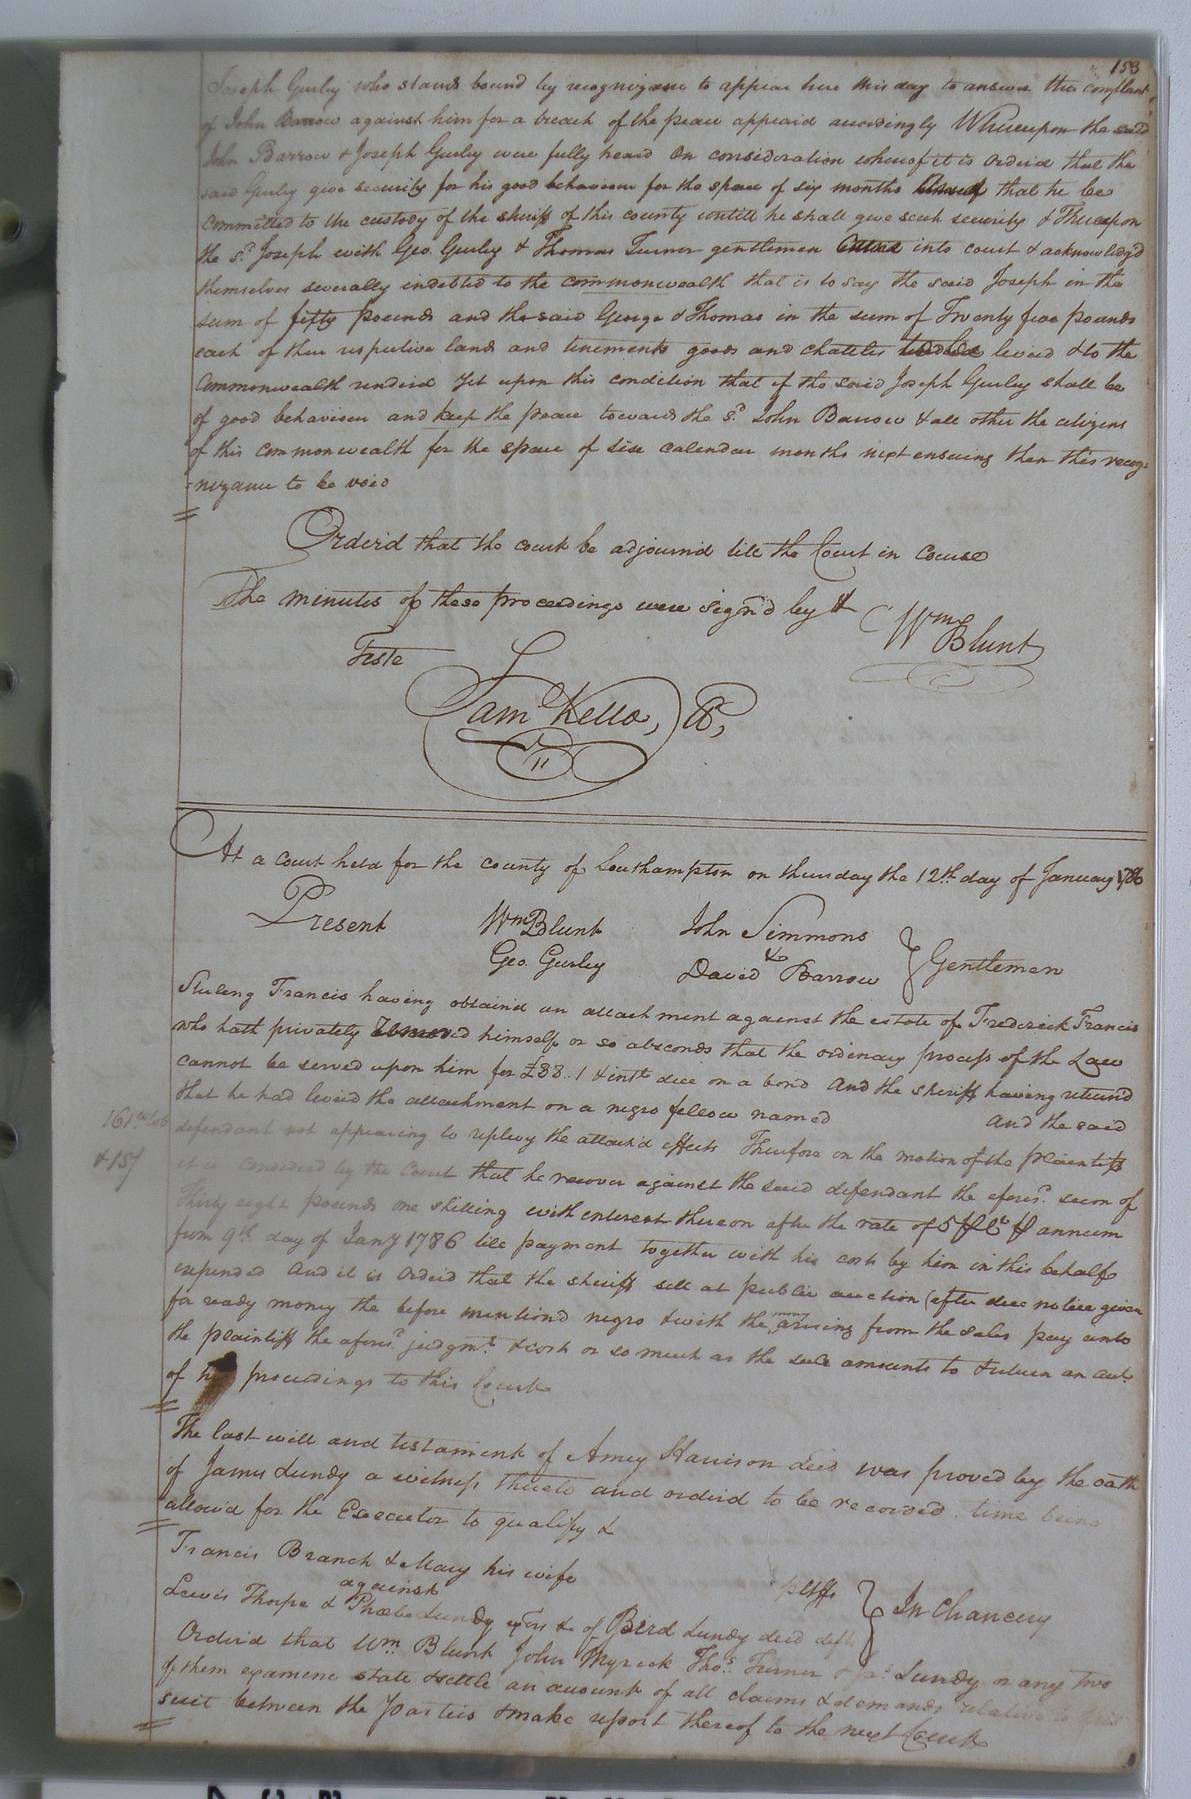 153
Joseph Gurley who stands bound by recognizance to appear here this day to answer the complaint
of John Barrow against him for a breach of the peace appeard accordingly Whereupon the said
John Barrow & Joseph Gurley were fully heard On consideration whereof it is Orderd that the
said Gurley give security for his good behaviour for the space of six months that he be
Committed to the custody of the sheriff of this county untill he shall give such security & Thereupon
the sd. Joseph with Geo. Gurley & Thomas Turner gentlemen Came into court & acknowledg'd
themselves severally indebted to the commonwealth that is to say the said Joseph in the
sum of fifty pounds and the said George & Thomas in the sum of Twenty five pounds
each of their respective lands and tenements goods and chatteles to be levied & to the
Commonwealth renderd Yet upon this condition that if the said Joseph Gurley shall be
of good behaviour and keep the peace towards the sd. John Barrow & all other the citizens
of this commonwealth for the space of six calendar months next ensuing then this recog-
-nizance to be void
Orderd that the court be adjournd till the Court in Course
The minutes of these proceedings were sign'd by
Wm Blunt
Teste
Sam Kello,
At a Court held for the county of Southampton on thursday the 12th day of January 1786
Present Wm Blunt John Simmons
Geo. Gurley & David Barrow } Gentlemen
Sterling Francis having obtain'd an attachment against the estate of Frederick Francis
who hath privately Removed himself or so absconds that the ordinary process of the Law
cannot be served upon him for £38..1 & intt. due on a bond And the sheriff having returnd
that he had levied the attachment on a negro fellow named And the said
161
& 15/
defendant not appearing to replevy the attach'd effects Therefore on the motion of the plaintiff
it is considerd by the Court that he recover against the said defendant the aforesd. sum of
Thirty eight pounds one shilling with interest thereon after the rate of 5 annum
from 9th day of Jany 1786 till payment together with his costs by him in this behalf
expended And it is Orderd that the sheriff sell at public auction (after due notice given
for ready money the before mentiond negro & with the money arising from the sales pay unto
the plaintiff the aforesd. judgmt. & costs or so much as the sale amounts to & return an acct.
of his proceedings to this Court
The last will and testament of Amey Harrison decd was proved by the oath
of James Lundy a witness thereto and orderd to be recorded. time being
allow'd for the Executor to qualify &
Francis Branch & Mary his wife pltffs
against } In Chancery
Lewis Thorpe & Phoebe Lundy exors &c of Bird Lundy decd defts
Orderd that Wm. Blunt John Myrick Thos. Turner & Lundy or any two
of them examine state & settle an account of all claims & demands relative to this
suit between the Parties & make report thereof to the next Court